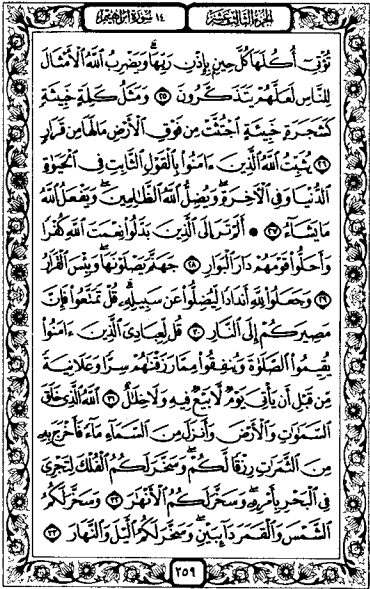 الجزء الثالث عشر
١٤ سورة ابراهيم
تُؤْتِىٓ أُكُلَهَا كُلَّ حِينٍۭ بِإِذْنِ رَبِّهَا ۗ وَيَضْرِبُ ٱللَّهُ ٱلْأَمْثَالَ
لِلنَّاسِ لَعَلَّهُمْ يَتَذَكَّرُونَ ٢٥ وَمَثَلُ كَلِمَةٍ خَبِيثَةٍ
كَشَجَرَةٍ خَبِيثَةٍ ٱجْتُثَّتْ مِن فَوْقِ ٱلْأَرْضِ مَا لَهَا مِن قَرَارٍ
٢٦ يُثَبِّتُ ٱللَّهُ ٱلَّذِينَ ءَامَنُوا۟ بِٱلْقَوْلِ ٱلثَّابِتِ فِى ٱلْحَيَوٰةِ
ٱلدُّنْيَا وَفِى ٱلْـَٔاخِرَةِ ۖ وَيُضِلُّ ٱللَّهُ ٱلظَّـٰلِمِينَ ۚ وَيَفْعَلُ ٱللَّهُ
مَا يَشَآءُ ٢٧ ۞ أَلَمْ تَرَ إِلَى ٱلَّذِينَ بَدَّلُوا۟ نِعْمَتَ ٱللَّهِ كُفْرًا
وَأَحَلُّوا۟ قَوْمَهُمْ دَارَ ٱلْبَوَارِ ٢٨ جَهَنَّمَ يَصْلَوْنَهَا ۖ وَبِئْسَ ٱلْقَرَارُ
٢٩ وَجَعَلُوا۟ لِلَّهِ أَندَادًا لِّيُضِلُّوا۟ عَن سَبِيلِهِۦ ۗ قُلْ تَمَتَّعُوا۟ فَإِنَّ
مَصِيرَكُمْ إِلَى ٱلنَّارِ ٣٠ قُل لِّعِبَادِىَ ٱلَّذِينَ ءَامَنُوا۟
يُقِيمُوا۟ ٱلصَّلَوٰةَ وَيُنفِقُوا۟ مِمَّا رَزَقْنَـٰهُمْ سِرًّا وَعَلَانِيَةً
مِّن قَبْلِ أَن يَأْتِىَ يَوْمٌ لَّا بَيْعٌ فِيهِ وَلَا خِلَـٰلٌ ٣١ ٱللَّهُ ٱلَّذِى خَلَقَ
ٱلسَّمَـٰوَٰتِ وَٱلْأَرْضَ وَأَنزَلَ مِنَ ٱلسَّمَآءِ مَآءً فَأَخْرَجَ بِهِۦ
مِنَ ٱلثَّمَرَٰتِ رِزْقًا لَّكُمْ ۖ وَسَخَّرَ لَكُمُ ٱلْفُلْكَ لِتَجْرِىَ
فِى ٱلْبَحْرِ بِأَمْرِهِۦ ۖ وَسَخَّرَ لَكُمُ ٱلْأَنْهَـٰرَ ٣٢ وَسَخَّرَ لَكُمُ
ٱلشَّمْسَ وَٱلْقَمَرَ دَآئِبَيْنِ ۖ وَسَخَّرَ لَكُمُ ٱلَّيْلَ وَٱلنَّهَارَ ٣٣
٢٥٩